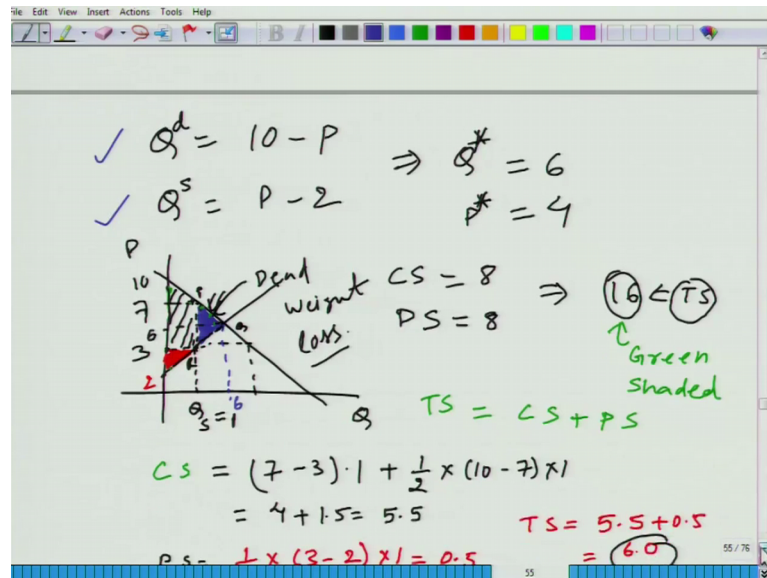 File Edit View Insert Actions Tools Help
Q^d = 10 - P ⇒ Q* = 6
Q^s = P - 2 P* = 4
P
10
7
6
3
2
Dead
Weight
Loss.
Q_s = 1
6
Q
CS = 8 ⇒ 16 < TS
PS = 8
Green
Shaded
TS = CS + PS
CS = (7 - 3)·1 + 1/2 × (10 - 7) × 1
= 4 + 1.5 = 5.5
TS = 5.5 + 0.5
= 6.0
PS = 1/2 × (3 - 2) × 1 = 0.5
55 / 76
55